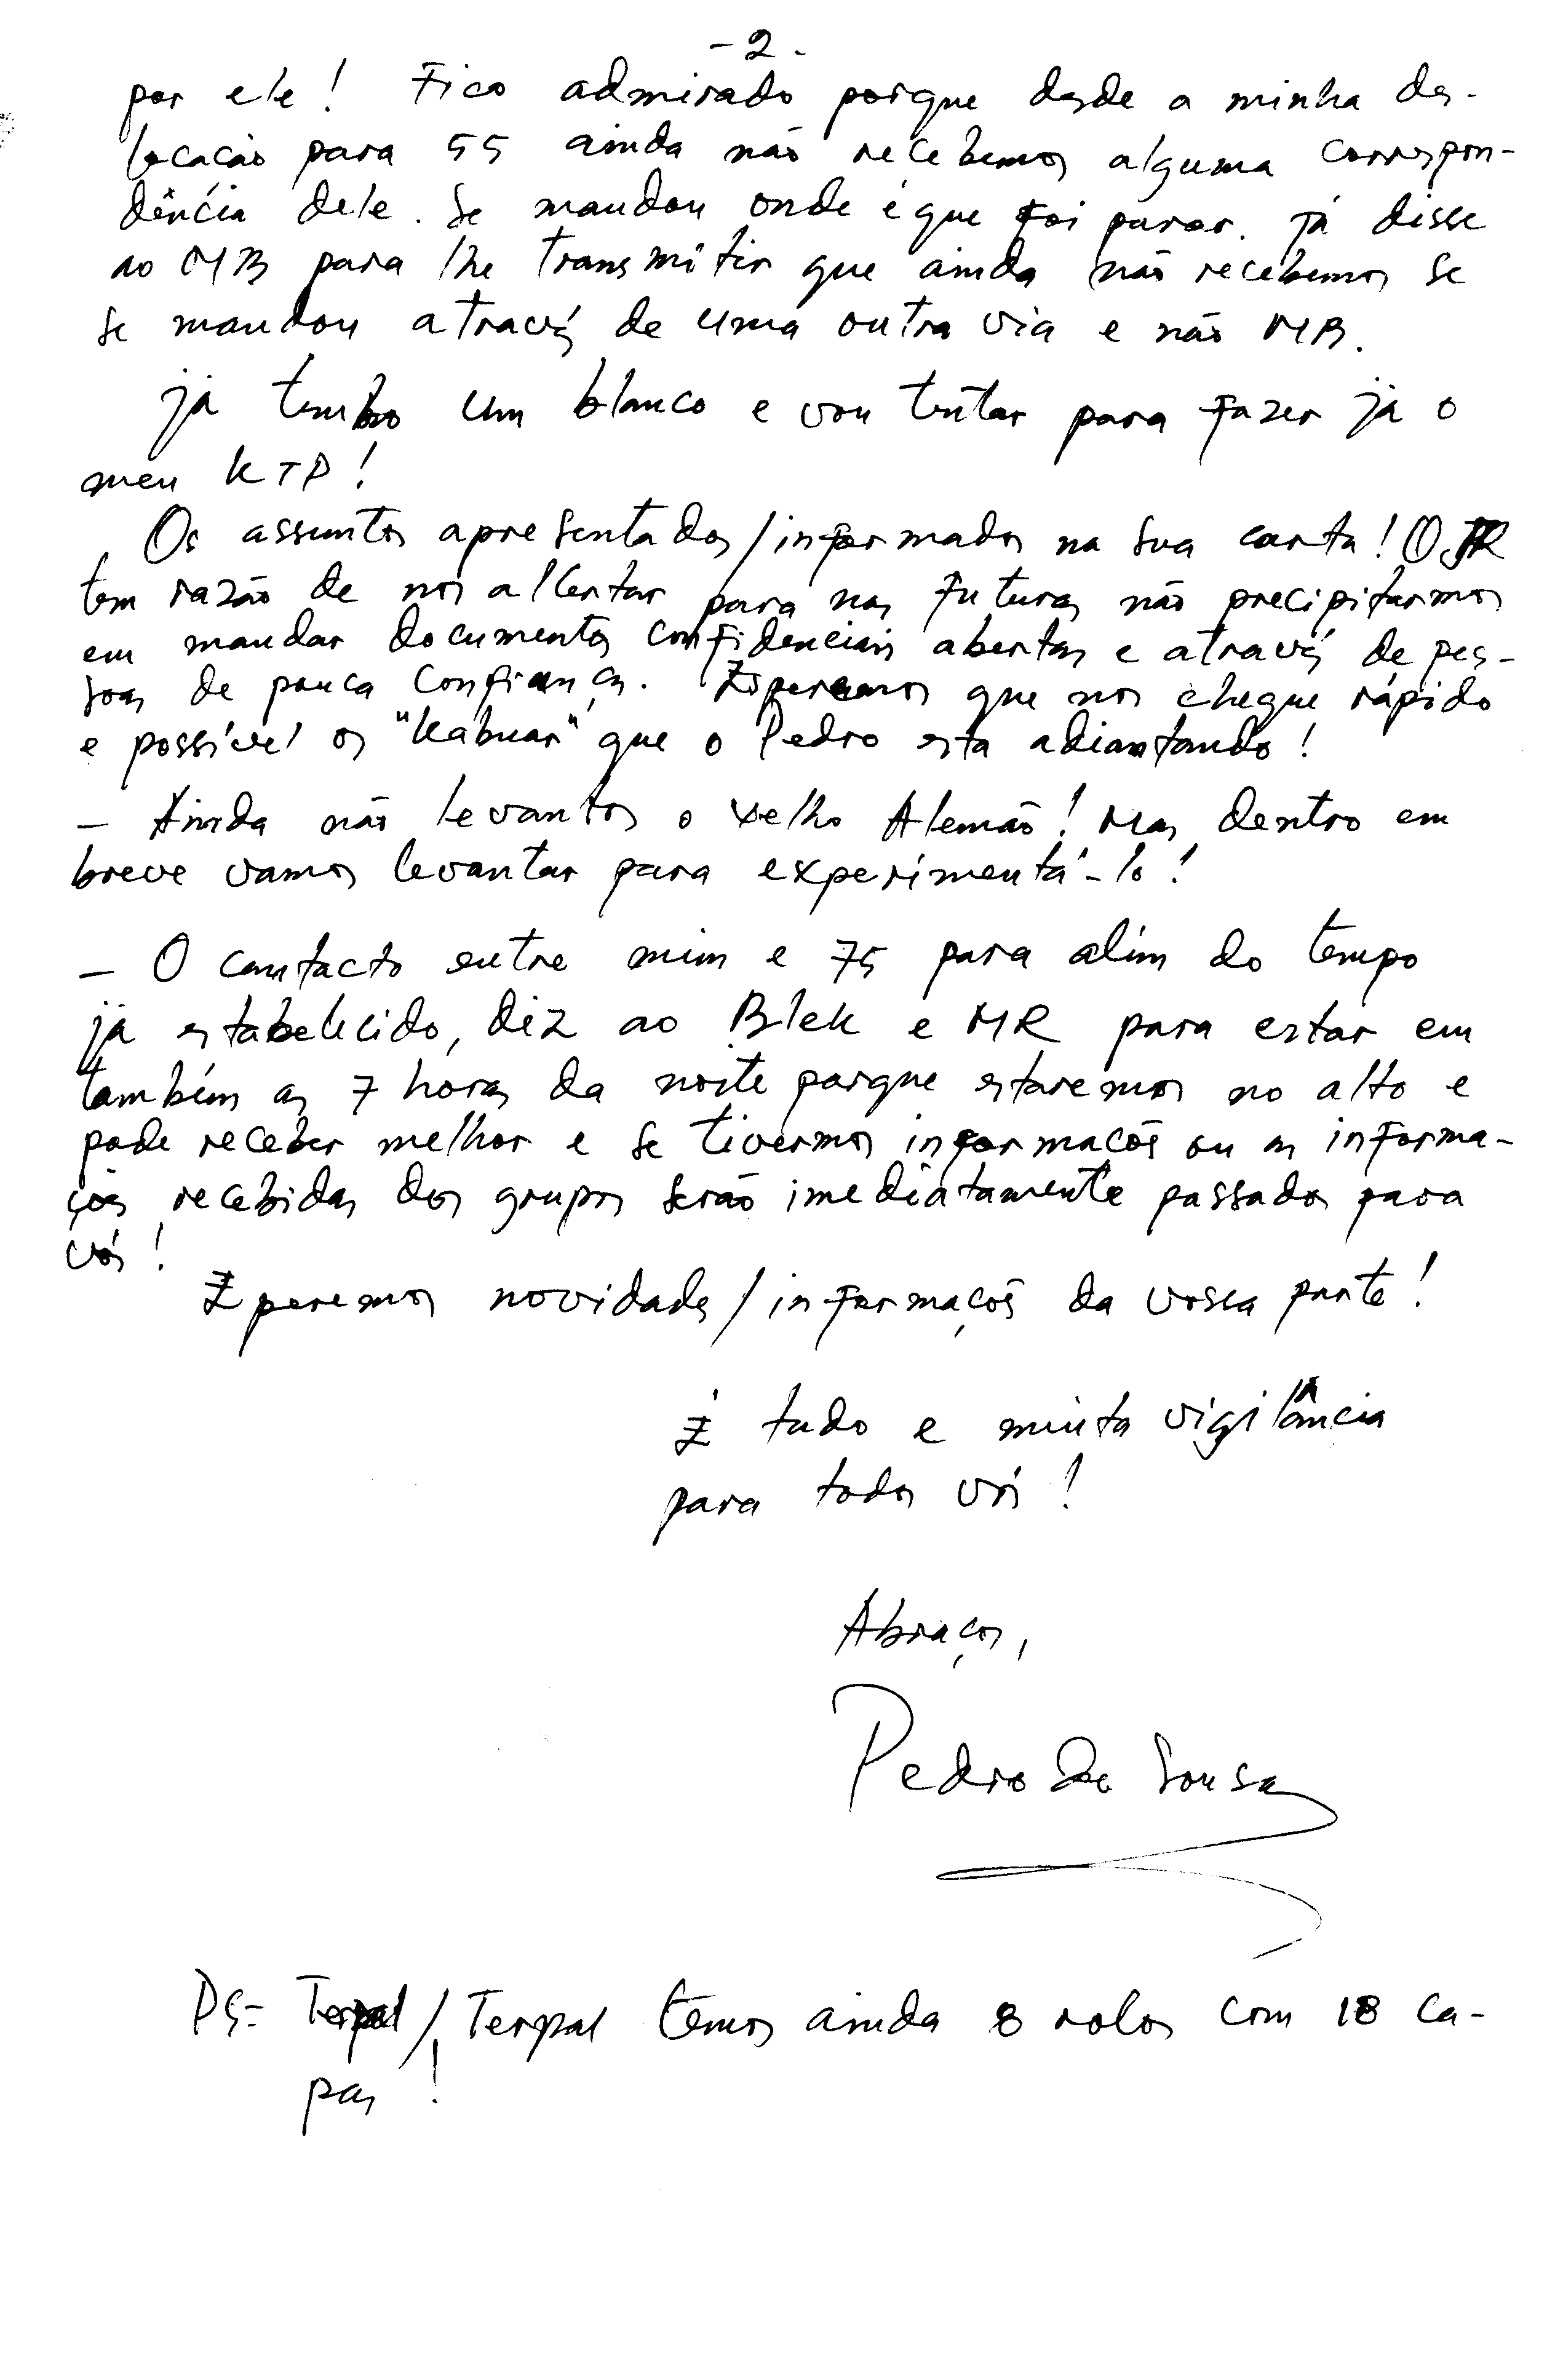 - 2 -
por ele! Fico admirado porque desde a minha des-
locacão para 55 ainda não recebemos alguma correspon-
dência dele. Se mandou onde é que foi parar. Já disse
ao MB para lhe transmitir que ainda não recebemos se
se mandou através de uma outra via e não MB.
já tenho um blanco e vou tentar para fazer já o
meu KTP!
Os assuntos apresentados/informados na sua carta! O JR
tem razão de nos allertar para nos futuros não precipitarmos
em mandar documentos confidenciais abertos e através de pes-
soas de pouca confiança. Esperemos que nos chegue rápido
e possível os "kabuar" que o Pedro esta adiantando!
- Ainda não levantos o velho Alemão! Mas dentro em
breve vamos levantar para experimentá-lo!
- O contacto entre mim e 75 para além do tempo
já estabelecido, diz ao Blek e MR para estar em
também as 7 horas da noite porque estaremos no alto e
pode receber melhor e se tivermos informacõs ou as informa-
çõs recebidas dos grupos serão imediatamente passados para
vós!
Esperemos novidades/informaçõs da vossa parte!
É tudo e muita vigilância
para todos vós!
Abraços,
Pedro De Sousa
PS- Terpal/Terpal temos ainda 8 rolos com 18 ca-
pas!